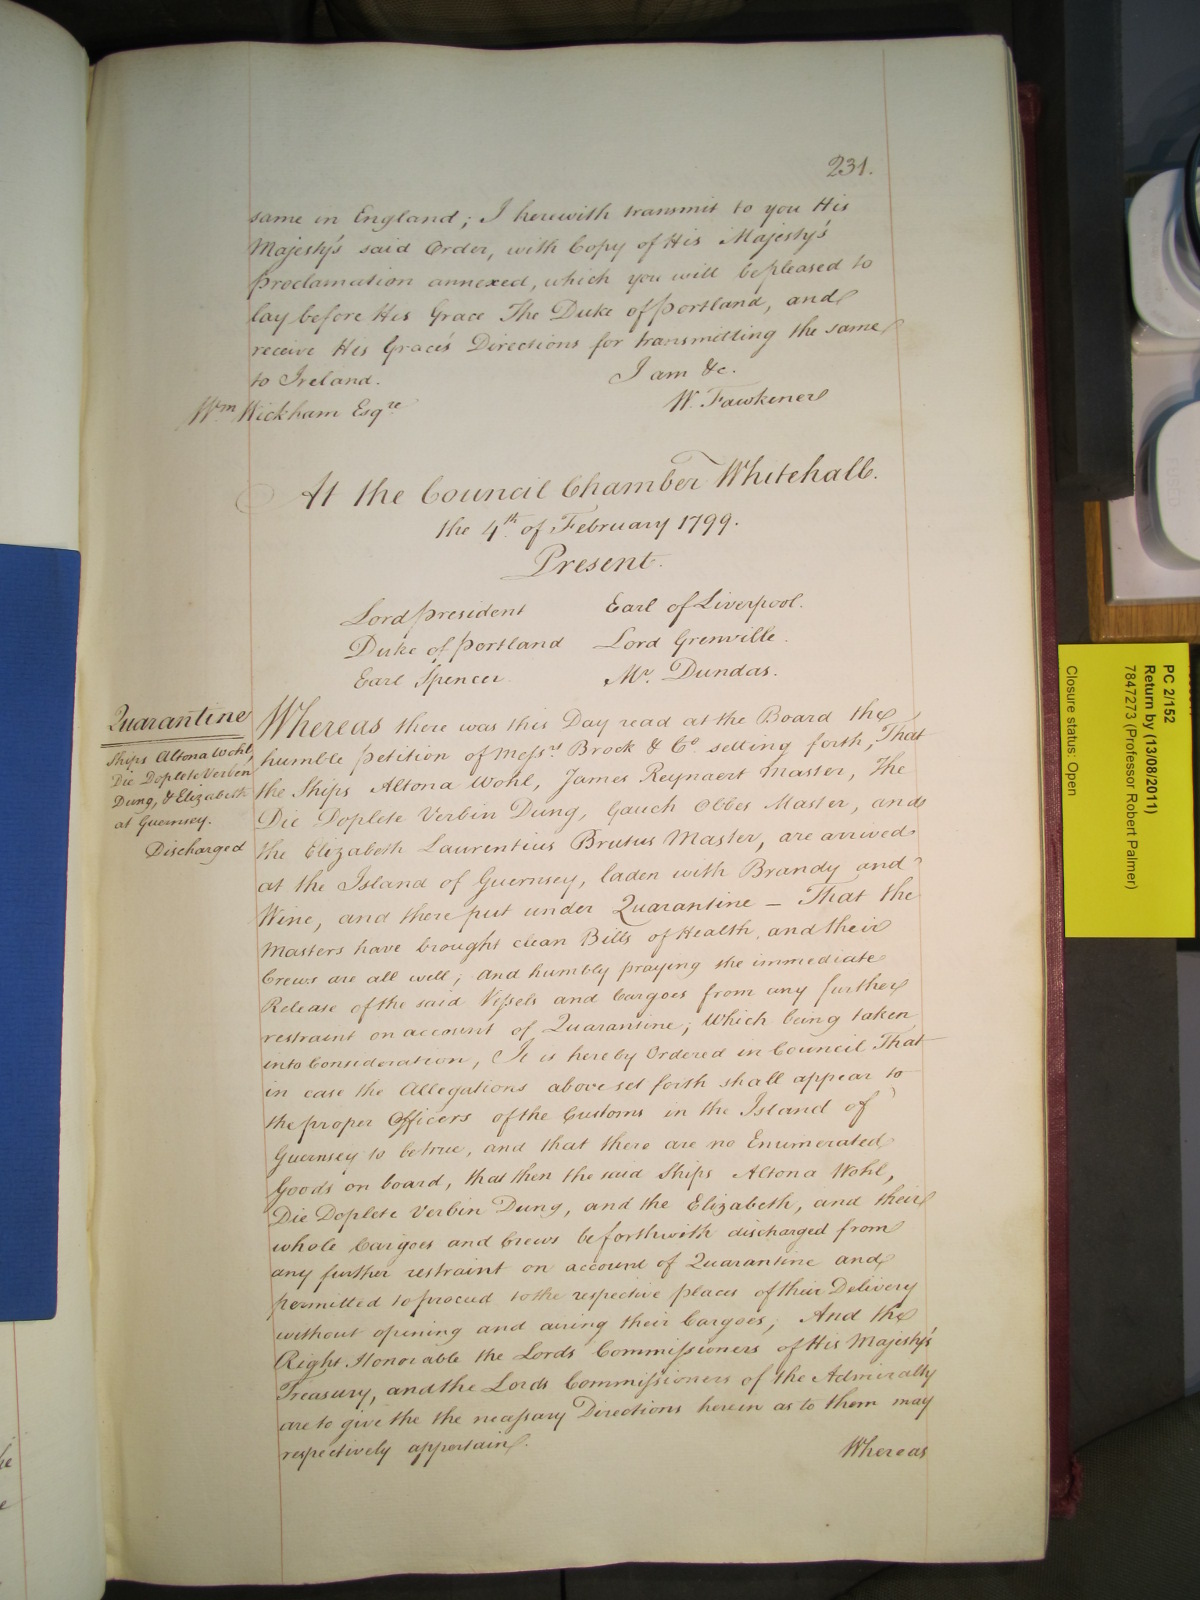 231.
same in England; I herewith transmit to you His
Majesty's said Order, with Copy of His Majesty's
Proclamation annexed, which you will be pleased to
lay before His Grace The Duke of Portland, and
receive His Grace's Directions for transmitting the same
to Ireland. I am &c.
Wm Wickham Esqre W. Fawkener
At the Council Chamber Whitehall.
the 4th of February 1799.
Present.
Lord President Earl of Liverpool.
Duke of Portland Lord Grenville.
Earl Spencer. Mr. Dundas.
Quarantine
Ships Altona Wohl,
Die Doplete Verben
Dung, & Elizabeth
at Guernsey.
Discharged
Whereas there was this Day read at the Board the
humble Petition of Messrs. Brock & Co. setting forth, That
the Ships Altona Wohl, James Reynaert Master, The
Die Doplete Verbin Dung, Gauch Obbes Master, and
the Elizabeth Laurentius Brutus Master, are arrived
at the Island of Guernsey, laden with Brandy and
Wine, and there put under Quarantine – That the
Masters have brought clean Bills of Health, and their
Crews are all well; and humbly praying the immediate
Release of the said Vessels and Cargoes from any further
restraint on account of Quarantine; Which being taken
into Consideration, It is hereby Ordered in Council That
in case the Allegations above set forth shall appear to
the proper Officers of the Customs in the Island of
Guernsey to be true, and that there are no Enumerated
Goods on board, that then the said Ships Altona Wohl,
Die Doplete Verbin Dung, and the Elizabeth, and their
whole Cargoes and Crews be forthwith discharged from
any further restraint on account of Quarantine and
permitted to proceed to the respective places of their Delivery
without opening and airing their Cargoes; And the
Right Honorable the Lords Commissioners of His Majesty's
Treasury, and the Lords Commissioners of the Admiralty
are to give the the necessary Directions herein as to them may
respectively appertain.
Whereas
PC 2/152
Return by (13/08/2011)
7847273 (Professor Robert Palmer)
Closure status: Open